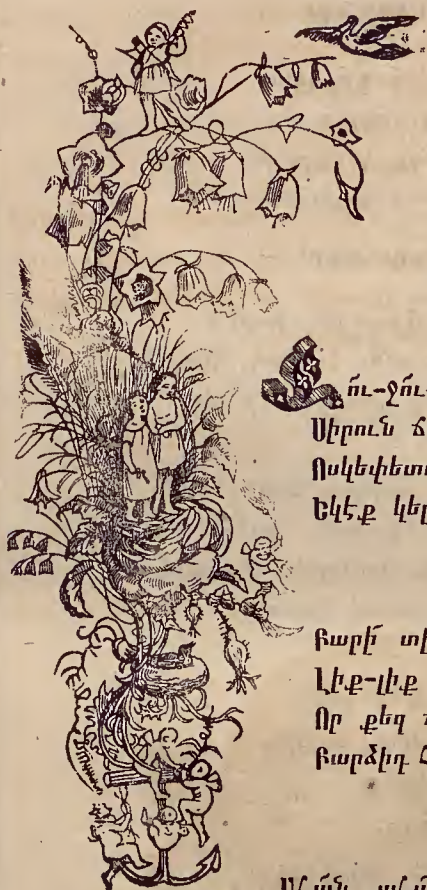 Ջո՜ւ-ջո՜ւ-
Սիրուն ճ
Ոսկեփետո
Եկէք կեր
Բարի՜ տի
Լիք-լիք
Որ քեզ
Բարձիդ